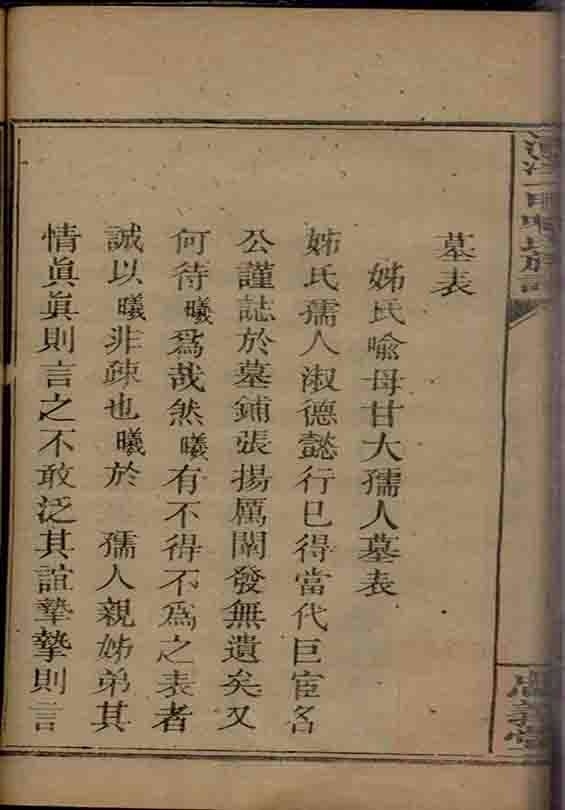 墓表
姊氏喻母甘大孺人墓表
姊氏孺人淑德懿行已得當代巨宦名
公謹誌於墓鋪張揚厲闡發無遺矣又
何待曦爲哉然曦有不得不爲之表者
誠以曦非疎也曦於 孺人親姊弟其
情眞眞則言之不敢泛其誼摯摯則言